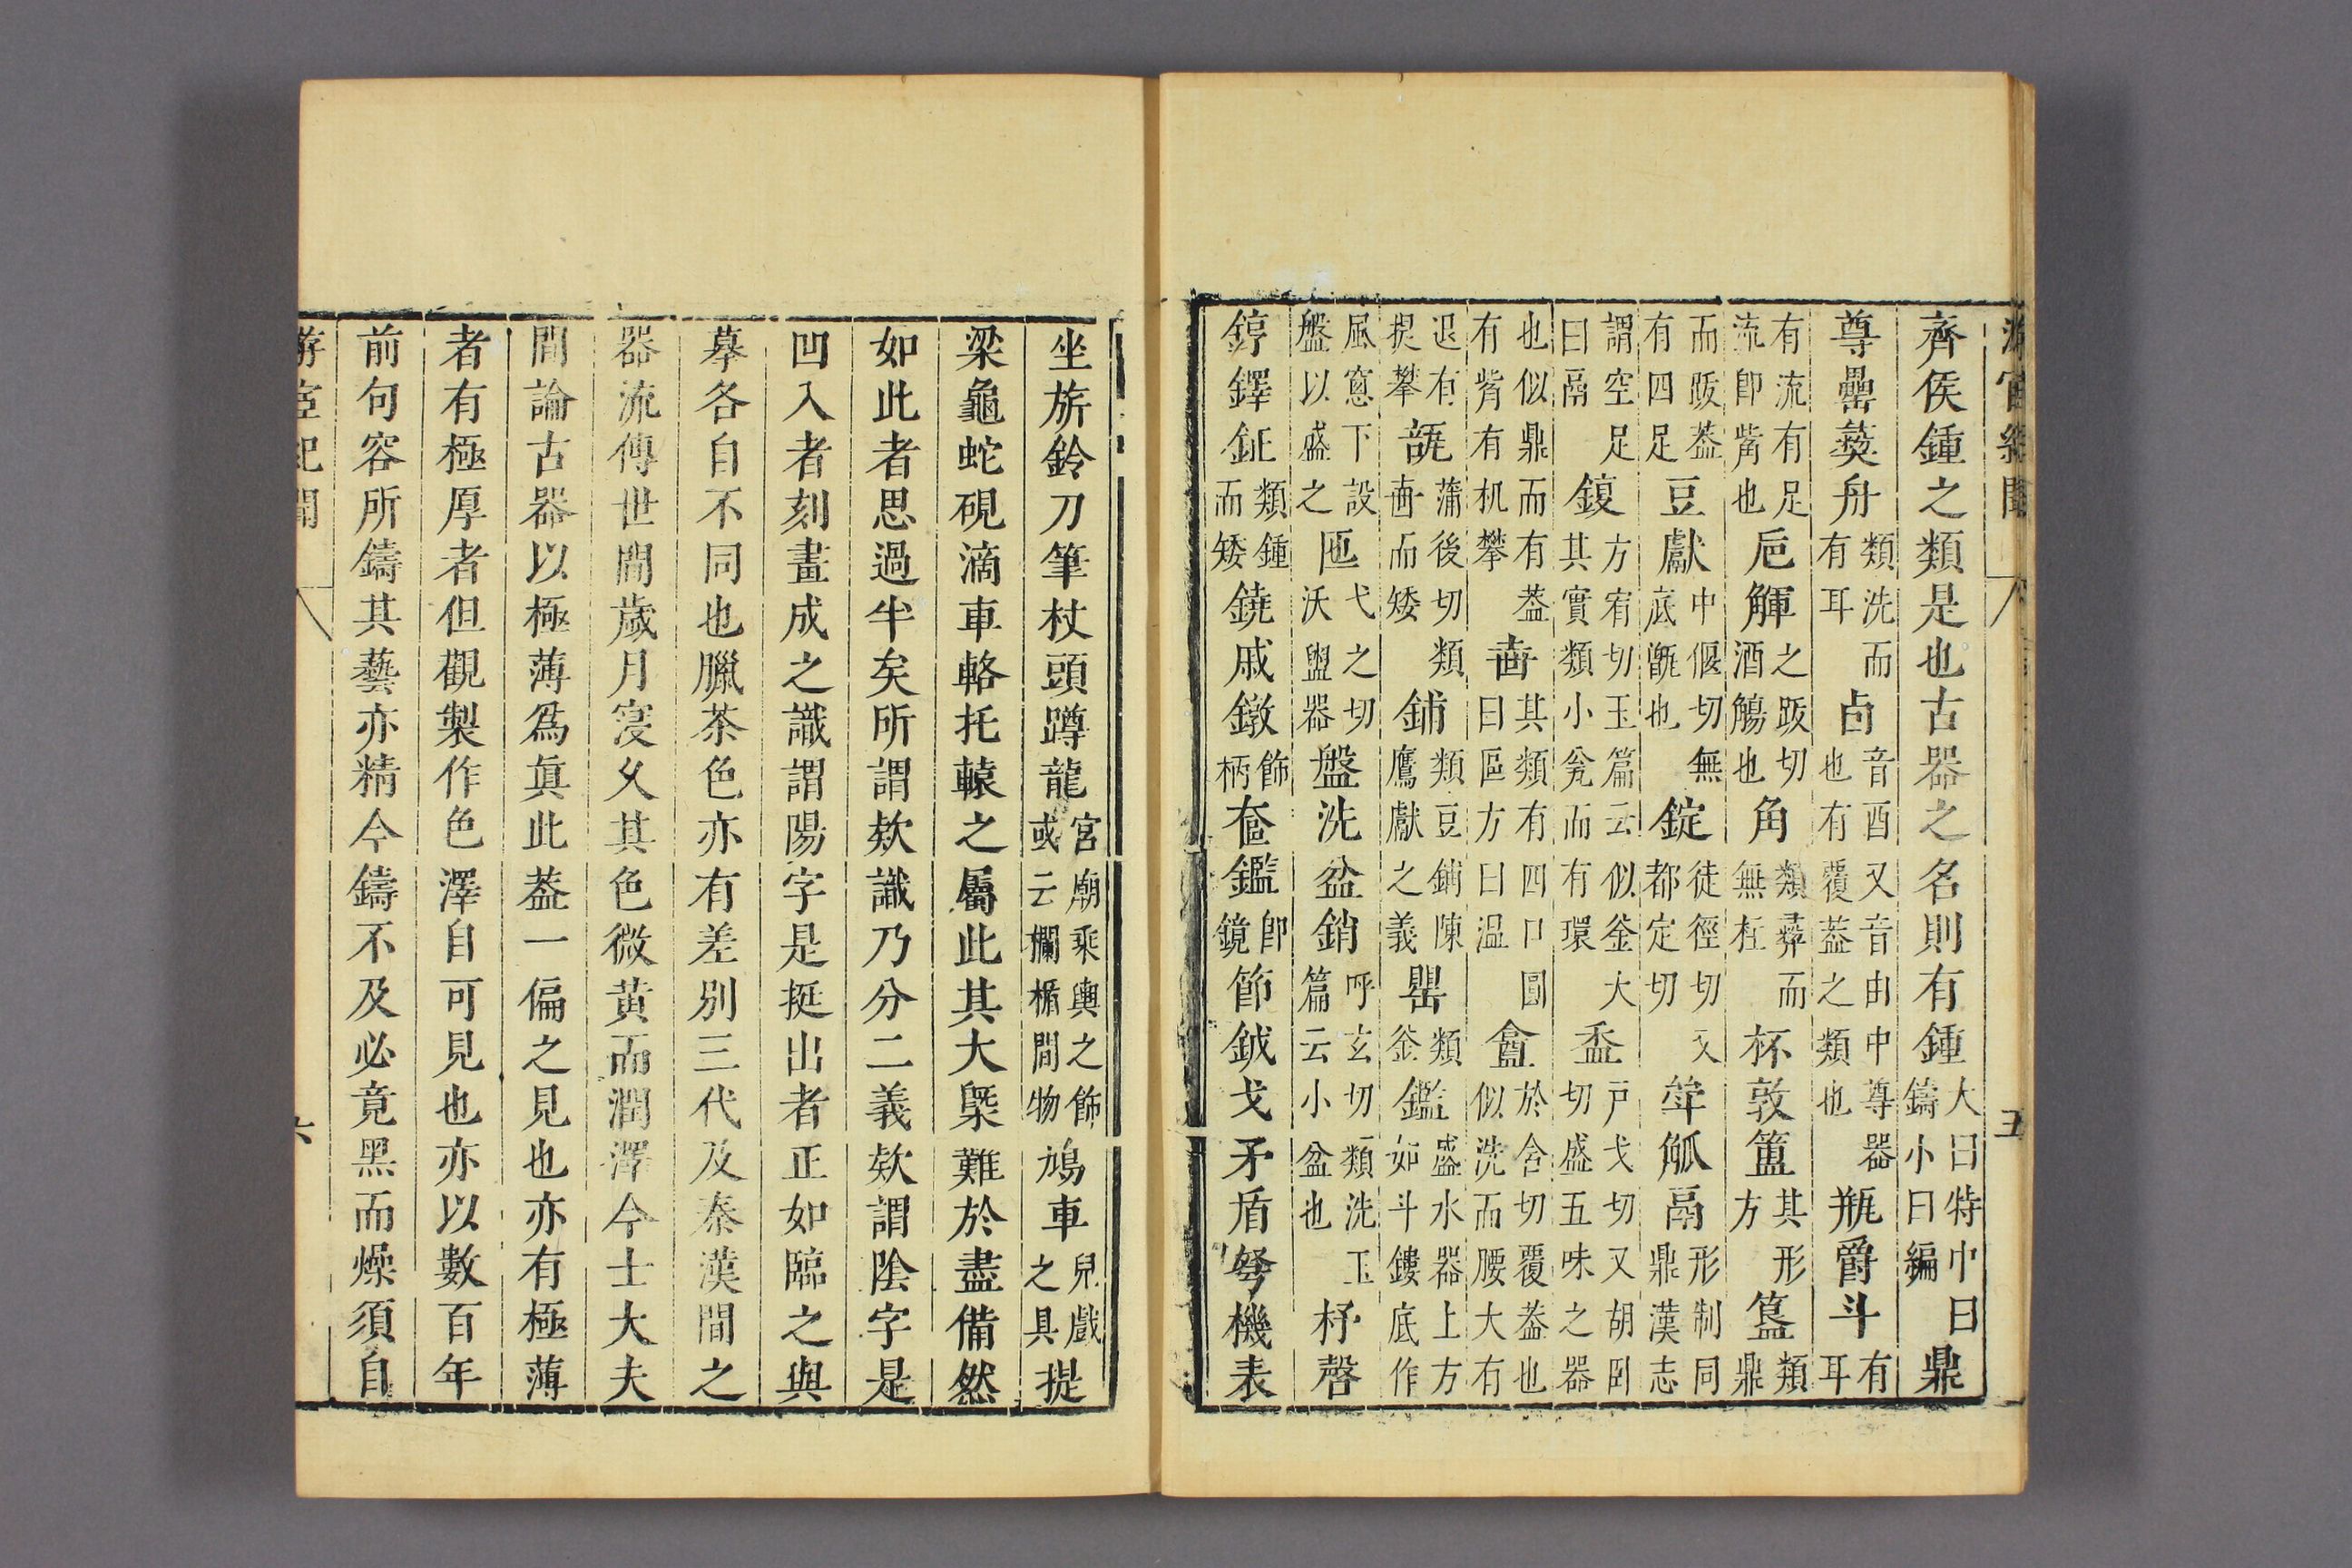 游宦紀聞 五
齊侯鍾之類是也古器之名則有鍾大曰特中曰鑄小曰編鼎
尊罍彝舟類洗而有耳卣音酉又音由中尊器也有覆蓋之類也瓶爵斗有耳
有流有足流卽觜也巵觶之跂切酒觴也角類彝而無柱杯敦簠其形方簋類鼎
而跂蓋有四足豆甗中偃切無底甑也錠徒徑切又都定切斝觚鬲形制同鼎漢志
謂空足曰鬲鍑方宥切玉篇云似釜大其實類小瓮而有環盉戶戈切又胡卧切盛五味之器
也似鼎而有蓋有觜有机攀壺其類有四口圓曰區方曰温盦於含切覆蓋也似洗而腰大有
迟有提攀瓿蒲後切類壺而矮鋪類豆鋪陳鷹獻之義罌類釜鑑盛水器上方如斗鏤底作
風窻下設盤以盛之匜弋之切沃盥器盤洗盆鋗呼玄切類洗玉篇云小盆也杅磬
錞鐸鉦類鍾而矮鐃戚鐓飾柄奩鑑卽鏡節鉞戈矛盾弩機表
坐旂鈴刀筆杖頭蹲龍宮廟乘輿之飾或云欄楯間物鳩車兒戲之具提
梁龜蛇硯滴車輅托轅之屬此其大槩難於盡備然
如此者思過半矣所謂欵識乃分二義欵謂陰字是
凹入者刻畫成之識謂陽字是挺出者正如臨之與
摹各自不同也臘茶色亦有差别三代及秦漢間之
器流傳世間歲月寖久其色微黄而潤澤今士大夫
間論古器以極薄爲真此葢一偏之見也亦有極薄
者有極厚者但觀製作色澤自可見也亦以數百年
前句容所鑄其藝亦精今鑄不及必竟黑而燥須自
游宦紀聞 六